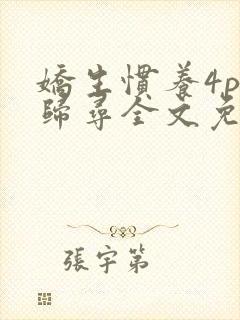 嬌生慣養4p
歸尋全文免
張宇第